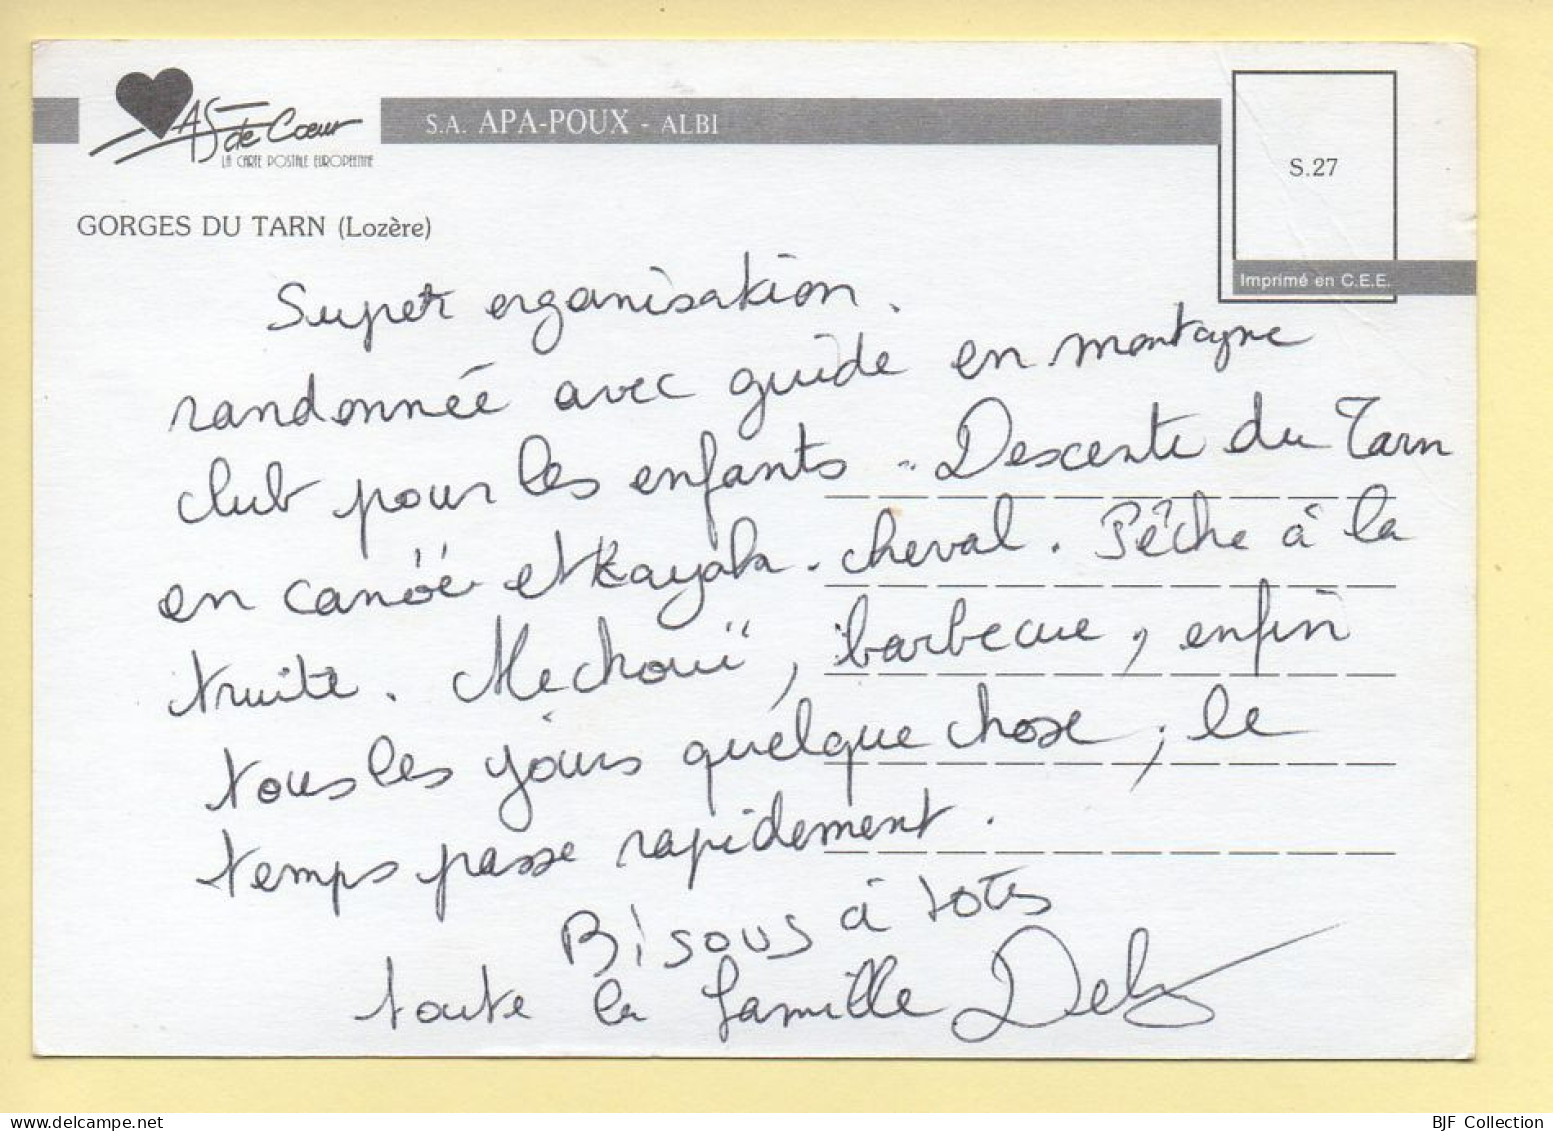 AS de Cœur
LA CARTE POSTALE EUROPEENNE
S.A. APA-POUX - ALBI
S.27
Imprimé en C.E.E.
GORGES DU TARN (Lozère)
Super organisation.
randonnée avec guide en montagne
club pour les enfants .. Descente du Tarn
en canöé et kayak. cheval. Pêche à la
truite. Mechouï, barbecue, enfin
tous les jours quelque chose, le
temps passe rapidement.
Bisous à tots
toute la famille
BJF Collection